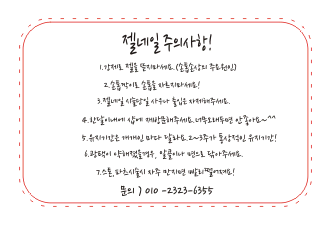 젤네일 주의사항!
1. 강제로 젤을 뜯지마세요. (손톱손상의 주요원인)
2. 손톱깎이로 손톱을 자르지마세요!
3. 젤네일 시술당일 사우나 출입은 자제해주세요.
4. 한달이내에 샵에 재방문해주세요. 너무오래두면 안좋아요~^^
5. 유지기간은 개개인 마다 달라요. 2~3주가 통상적인 유지기간!
6. 광택이 약해졌을경우, 알콜이나 면으로 닦아주세요.
7. 스톤, 파츠시술시 자주 만지면 빨리떨어져요!
문의 ) 010 -2323-6355